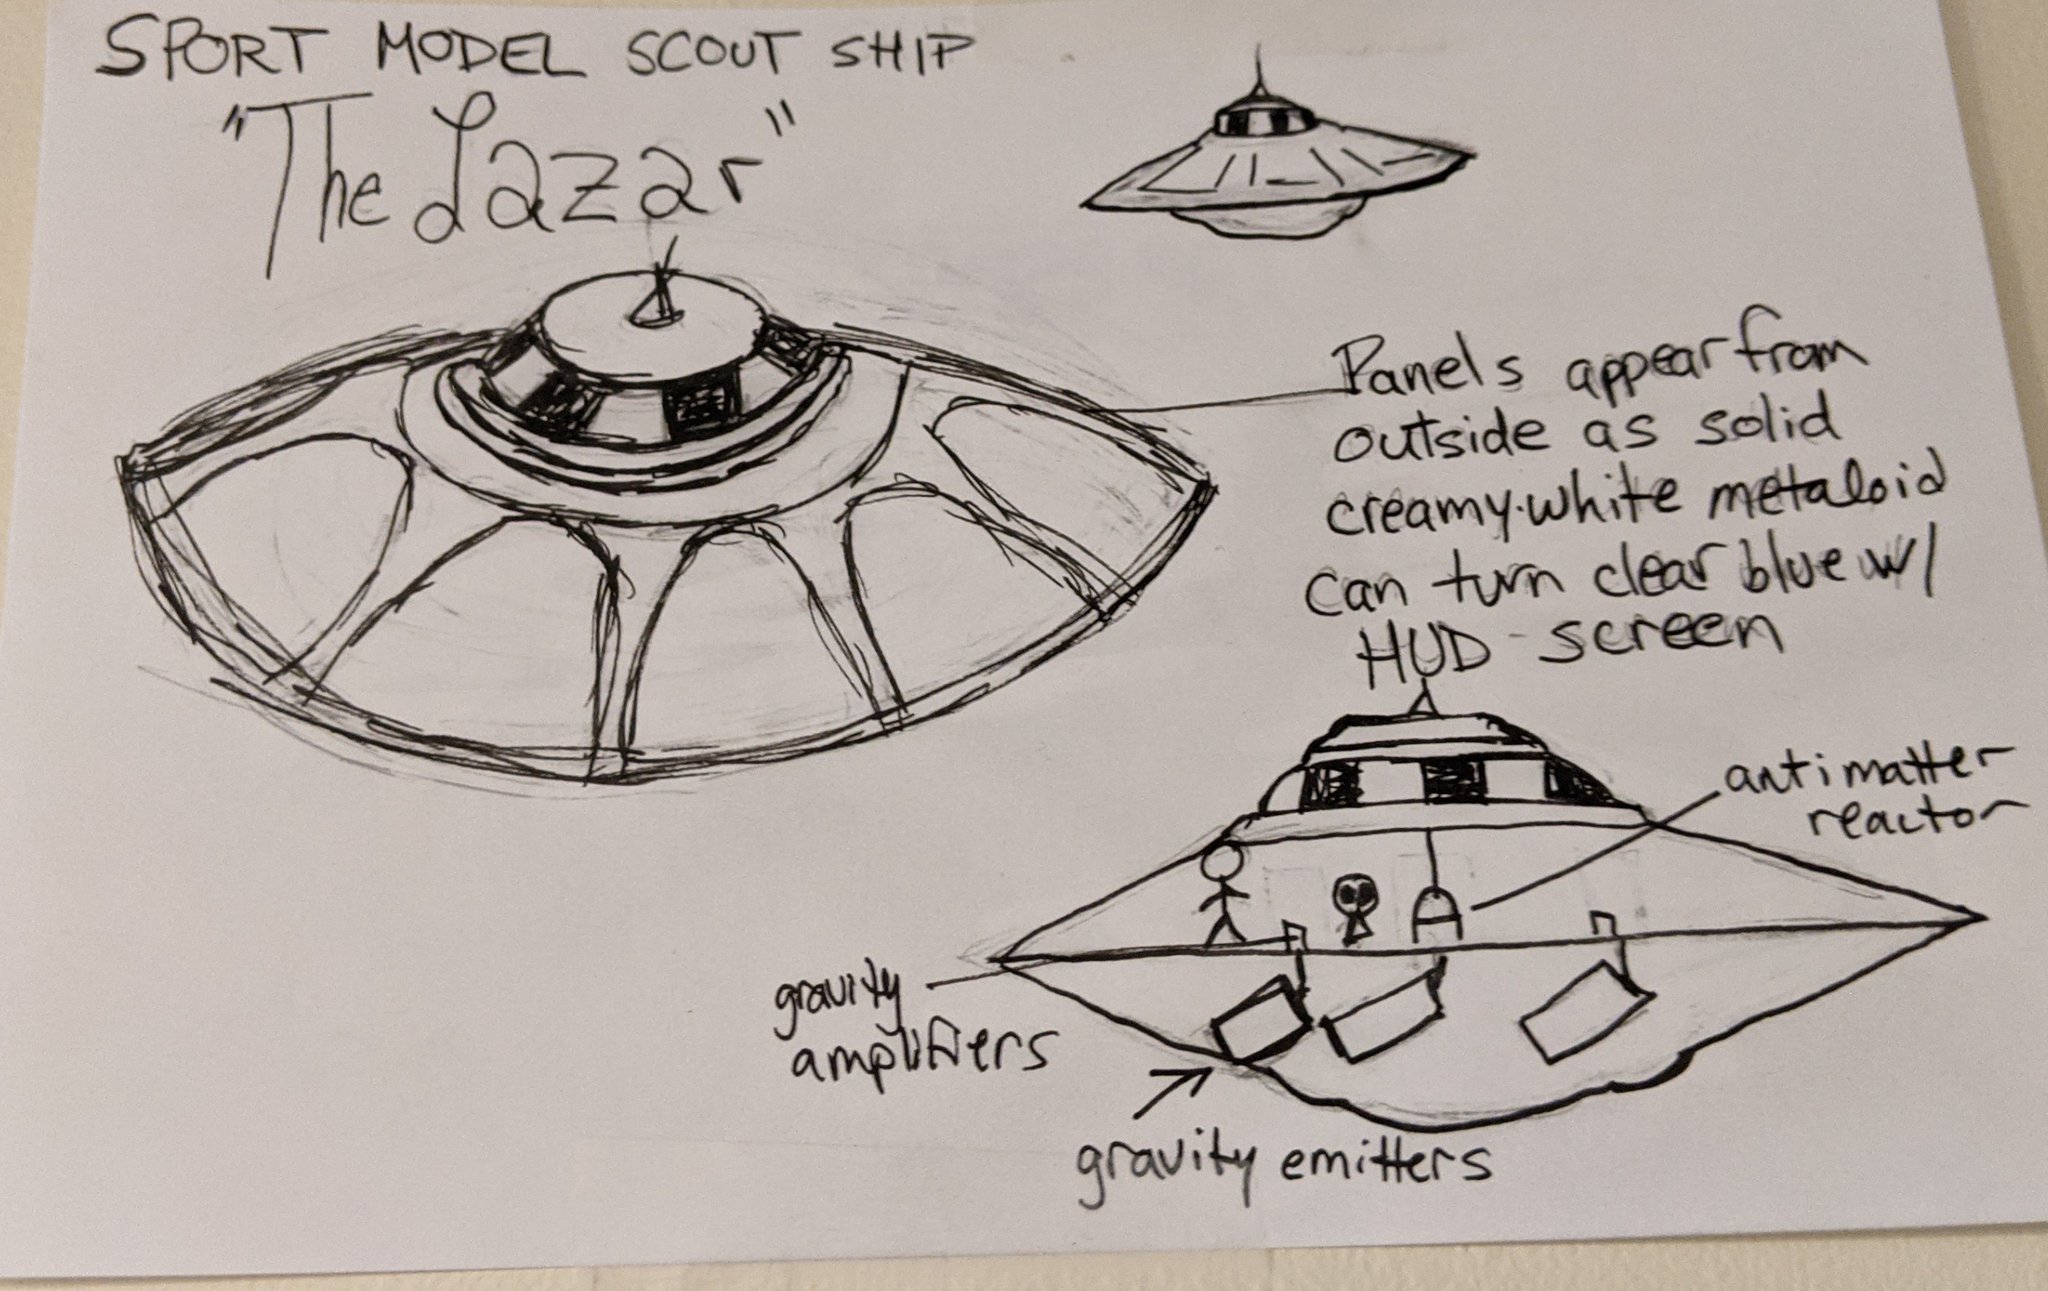 SPORT MODEL SCOUT SHIP
"The Lazar"
Panels appear from
outside as solid
creamy-white metaloid
can turn clear blue w/
HUD-screen
antimatter
reactor
gravity
amplifiers
gravity emitters